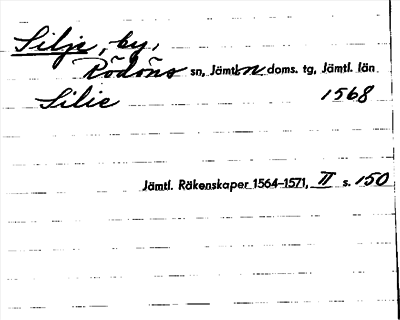 Silje, by,
Rödöns sn, Jämtl. n doms. tg, Jämtl. län
Silie 1568
Jämtl. Räkenskaper 1564-1571, II s. 150